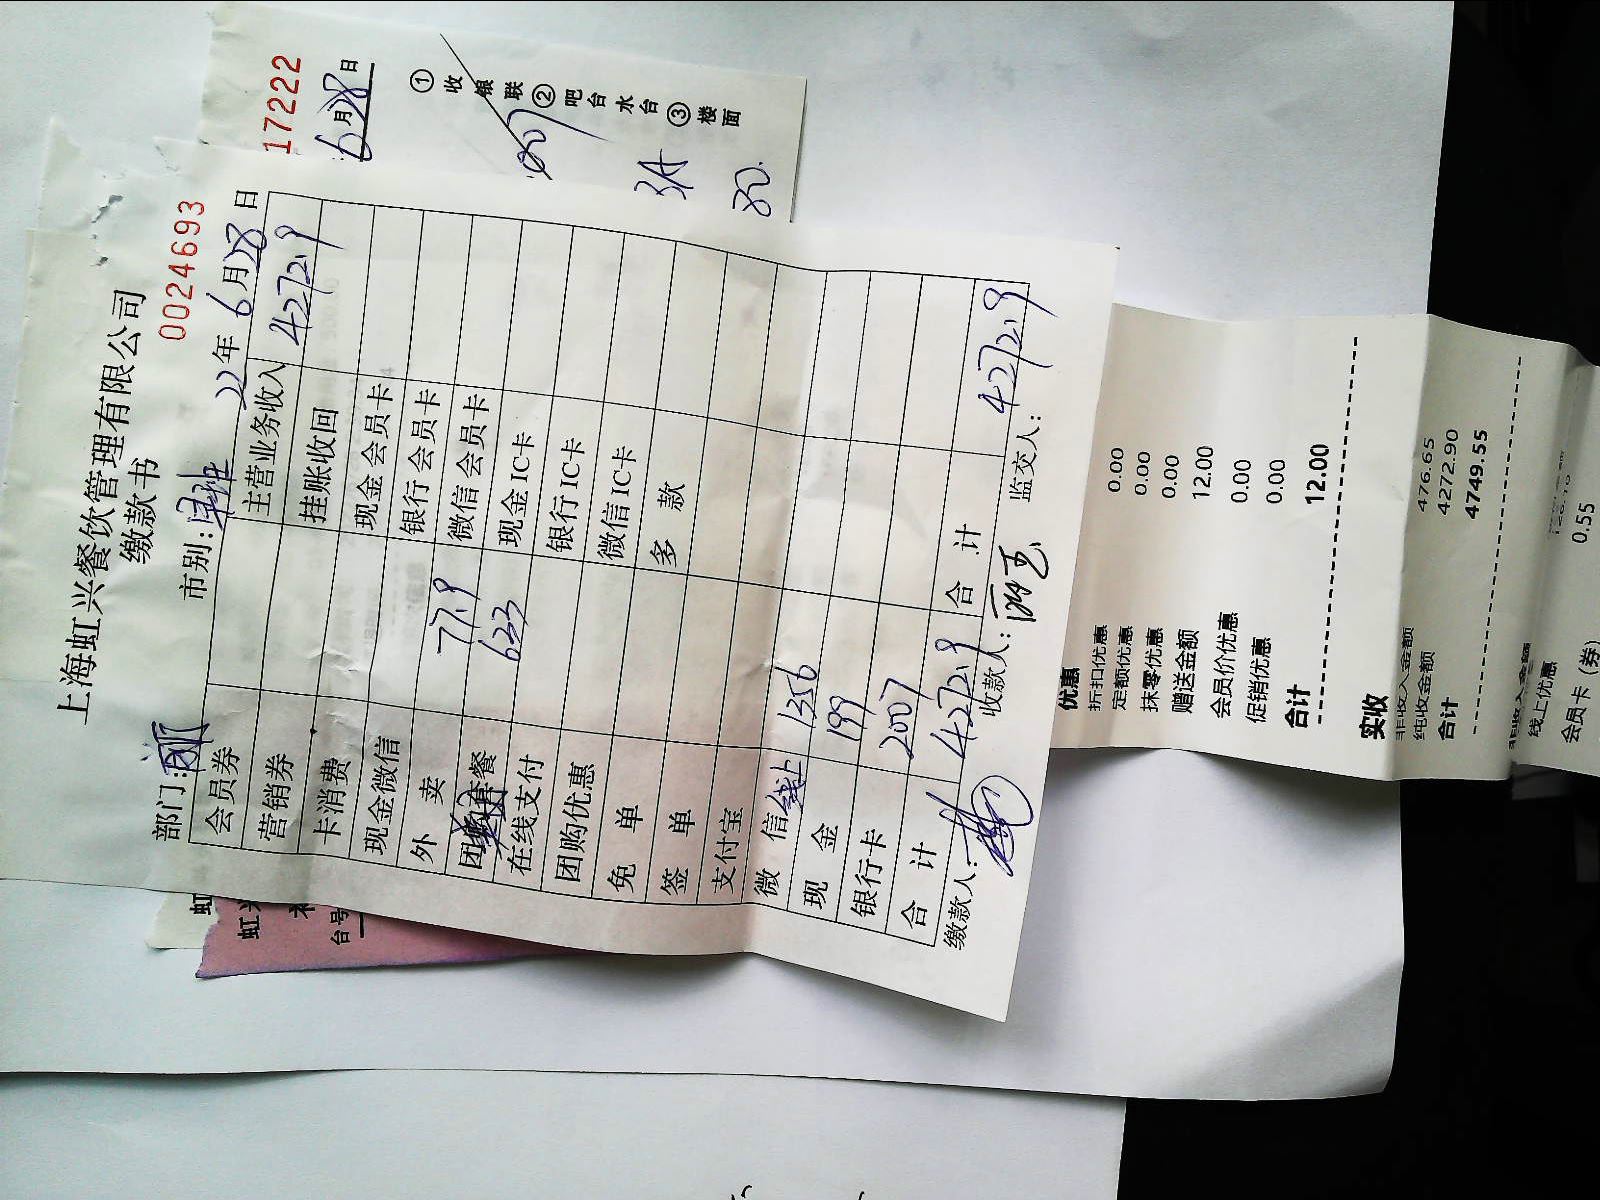 17222
6月28日
①收银联②吧台水台③楼面
3A
80.
上海虹兴餐饮管理有限公司
缴款书
0024693
部门:
市别:
22年6月28日
会员券
主营业务收入 4272.9
营销券
挂账收回
卡消费
现金会员卡
现金微信
银行会员卡
外卖 77.9
微信会员卡
633
现金IC卡
在线支付
银行IC卡
团购优惠
微信IC卡
免单
多款
签单
支付宝
微信 1356
现金 199
银行卡 2007
合计 4272.9
合计 4272.9
缴款人:
收款人:
监交人:
虹
虹兴
台号
优惠
折扣优惠 0.00
定额优惠 0.00
抹零优惠 0.00
赠送金额 12.00
会员价优惠 0.00
促销优惠 0.00
合计 12.00
实收
非收入金额 476.65
纯收金额 4272.90
合计 4749.55
非收入金额
线上优惠
会员卡(券) 0.55